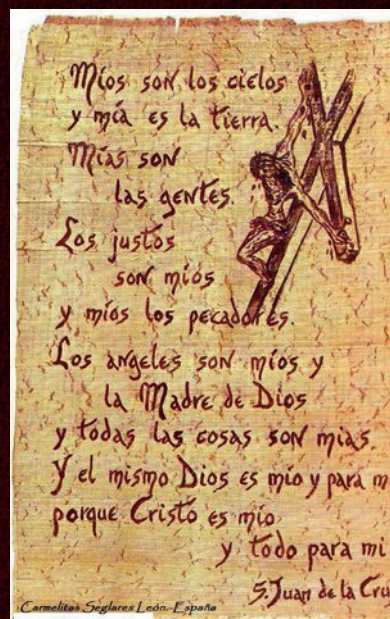 Míos son los cielos
y mía es la tierra.
Mías son
las gentes.
Los justos
son míos
y míos los pecadores.
Los angeles son míos y
la Madre de Dios
y todas las cosas son mias.
Y el mismo Dios es mío y para m
porque Cristo es mío
y todo para mi
S. Juan de la Cru
Carmelitas Seglares León.-España